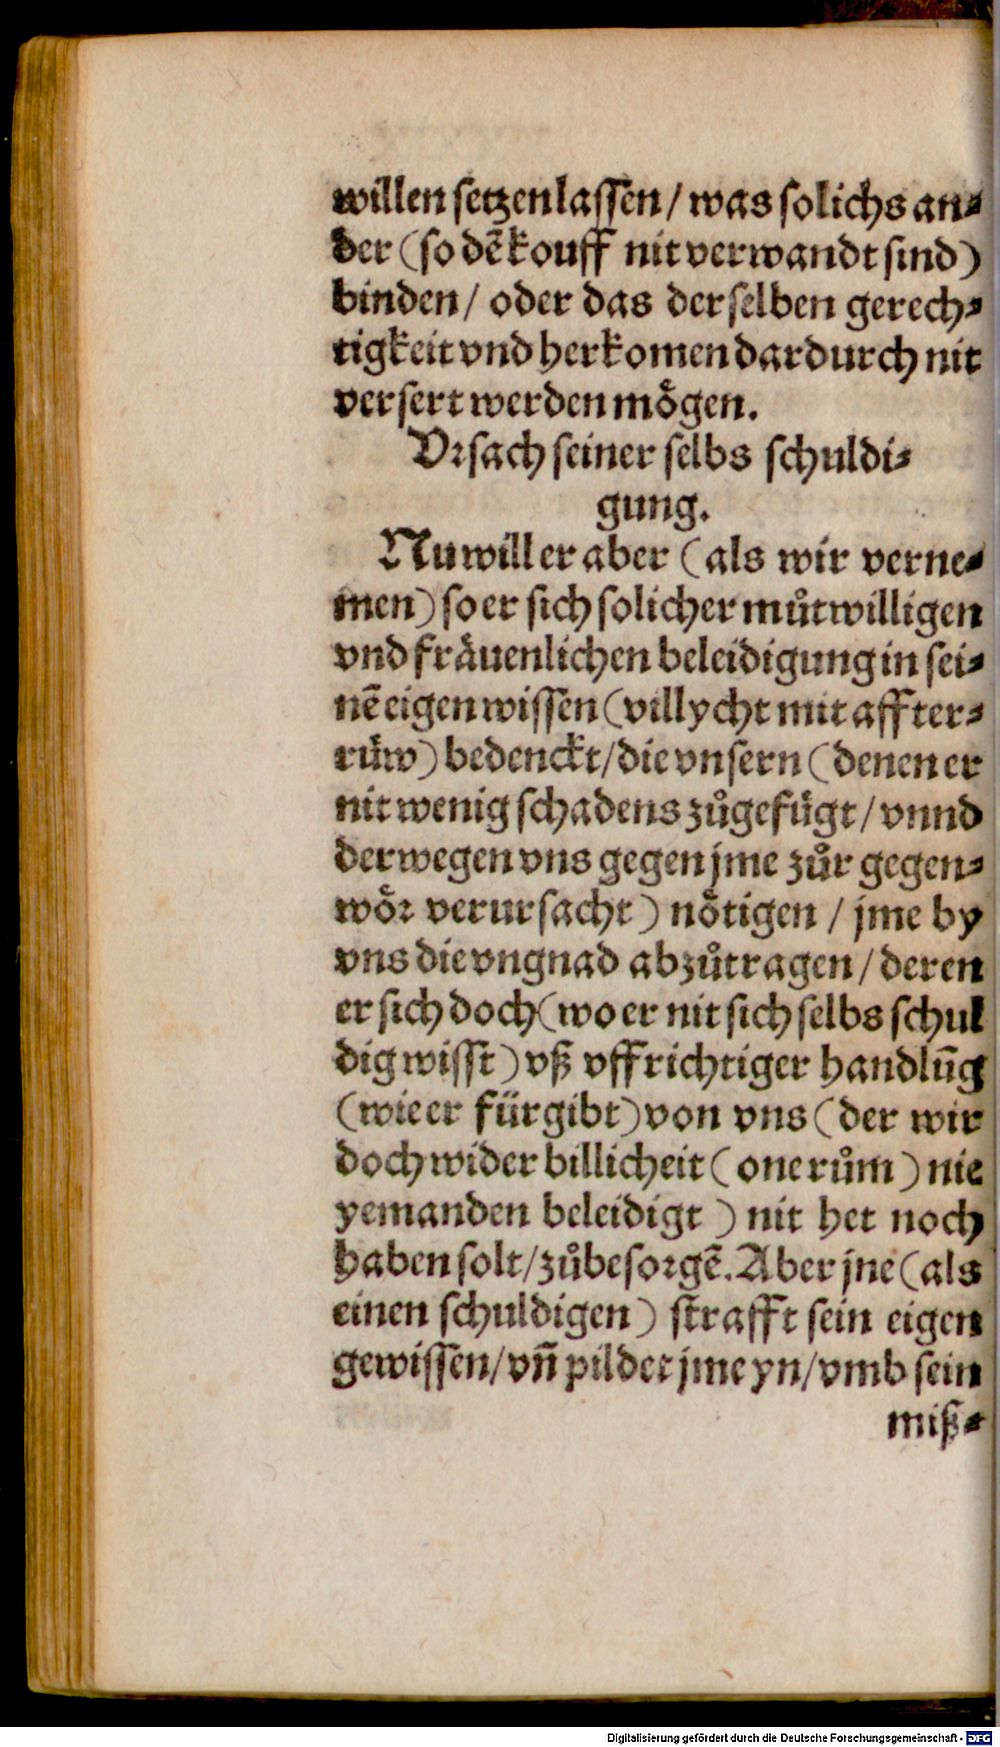 willen setzen lassen / was solichs an⸗
der (so dē kouff nit verwandt sind)
binden / oder das derselben gerech⸗
tigkeit vnd herkomen dardurch nit
versert werden moͤgen.
Vrsach seiner selbs schuldi⸗
gung.
Nu will er aber (als wir verne⸗
men) so er sich solicher muͦtwilligen
vnd fraͤuenlichen beleidigung in sei⸗
nē eigen wissen (villycht mit affter⸗
ruͤw) bedenckt / die vnsern (denen er
nit wenig schadens zuͦgefuͤgt / vnnd
derwegen vns gegen jme zuͦr gegen⸗
woͤr verursacht) noͤtigen / jme by
vns die vngnad abzuͦtragen / deren
er sich doch (wo er nit sich selbs schul
dig wisst) vß vffrichtiger handlūg
(wie er fuͤrgibt) von vns (der wir
doch wider billicheit (one ruͦm) nie
yemanden beleidigt) nit het noch
haben solt / zuͦbesorgē. Aber jne (als
einen schuldigen) strafft sein eigen
gewissen / vn̄ pildet jme yn / vmb sein
miß⸗
Digitalisierung gefördert durch die Deutsche Forschungsgemeinschaft - DFG